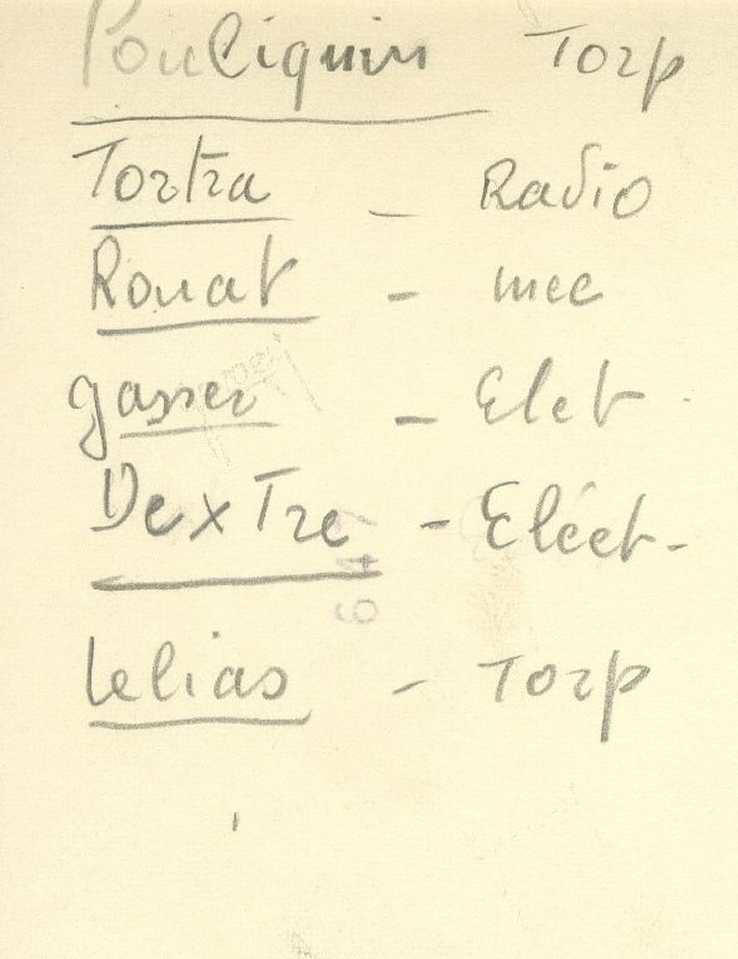 Pouliquin Torp
Tortra - Radio
Rouat - mec
gasser - Elet
DexTre - Eléct-
647
Lelias - Torp